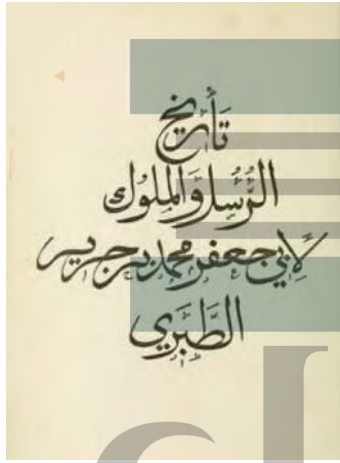 تَأريخ
الرُّسُل وَالمُلوُك
لأبي جعفر محمد بن جرير
الطَّبَري